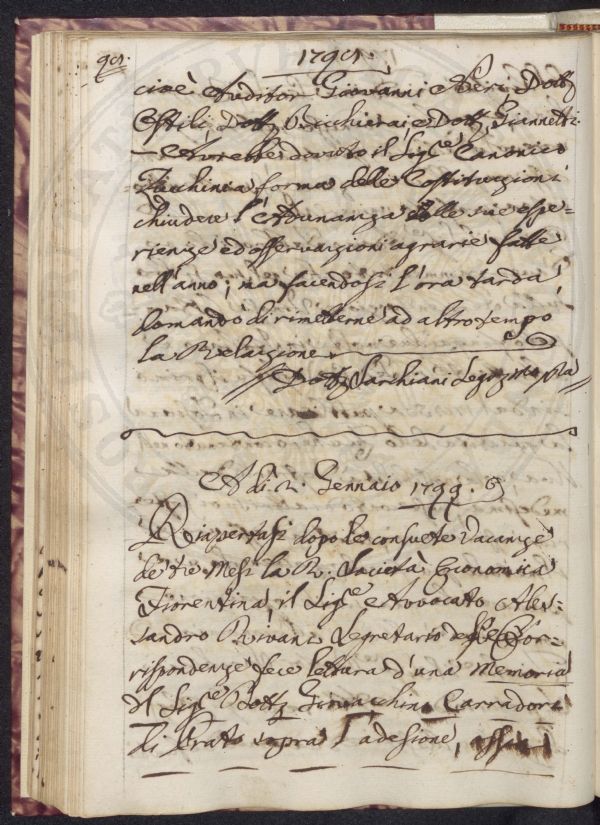 1799.
cioè Auditor Giovanni Neri Dott.
Stili, Dott. Bicchierai e Dott. Giannetti
Avrebbe dovuto il Sig.e Canonico
Zucchini a forma delle Costituzioni
chiudere l'Adunanza colle sue espe=
rienze ed osservazioni agrarie fatte
nell'anno; ma facendosi l'ora tarda
domandò di rimetterne ad altro tempo
la Relazione
Dott. Sarchiani Seg.
A dì 2. Gennaio 1799.
Riapertasi dopo le consuete Vacanze
de tre Mesi la R. Società Economica
Fiorentina il Sig.e Avvocato Ales=
sandro Rivani Segretario delle Cor=
rispondenze fece lettura d'una Memoria
del Sig.e Dott. Giovacchino Carradori
di Prato sopra l'adesione,